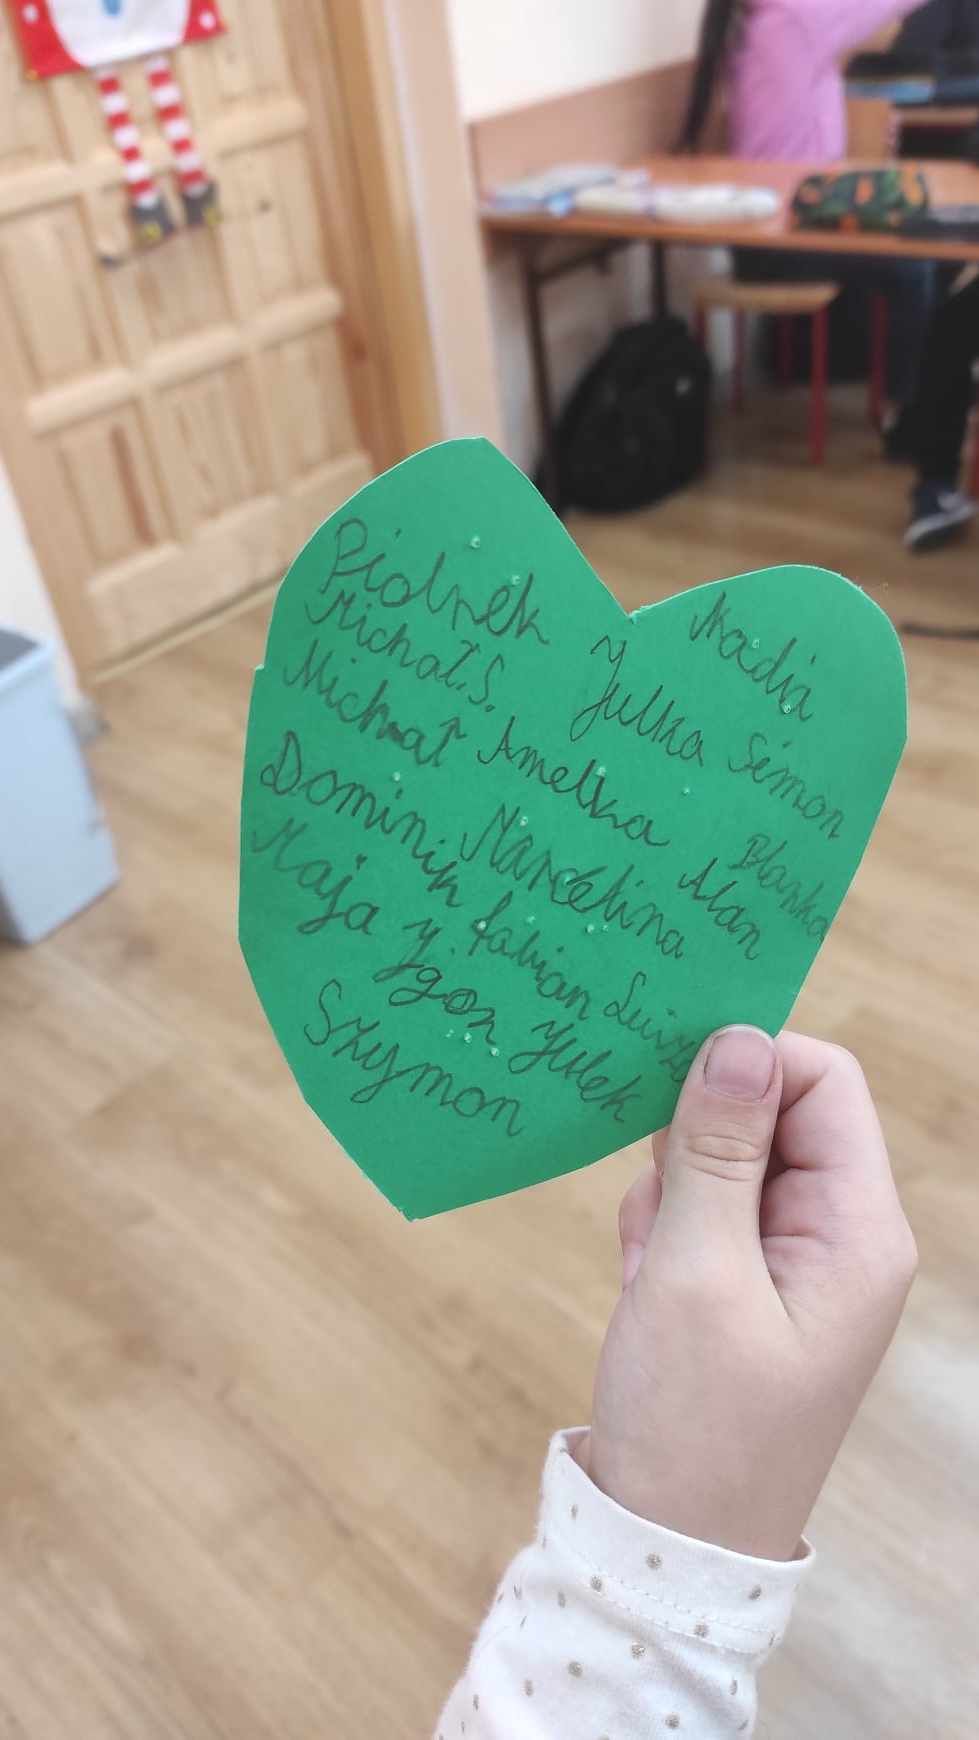 Piotrek
Michał.S.
Michał Amelka
Dominik Marcelina
Maja y. fabian Luiza
Jgon Julek
Szymon
Nadia
Julka Simon
Blanka
Alan